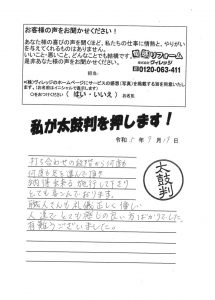 お客様の声をお聞かせください！
あなた様の喜びの声を聞くほど、私たちの仕事に情熱と、やりがい
を与えてくれるものはありません。
いいこと・悪いこと、どんなことでも結構です。
是非あなた様の声をお聞かせください。
リフォーム
株式会社ヴィレッジ
0120-063-411
担当:
※(株)ヴィレッジのホームページにサービスの感想(写真)を掲載する旨を同意いたし
ます。(お名前はイニシャルで表示します)
○をおつけください（はい・いいえ）お名前
私が太鼓判を押します！
令和5年9月19日
打ち合わせの段階から何度
何度も足を運んで頂き
納得出来る施行して下さり
とても良かったです。
職人さんも礼儀正しく優しい
人達でとても感じの良い方ばかりでした
有難うございました。
太鼓判